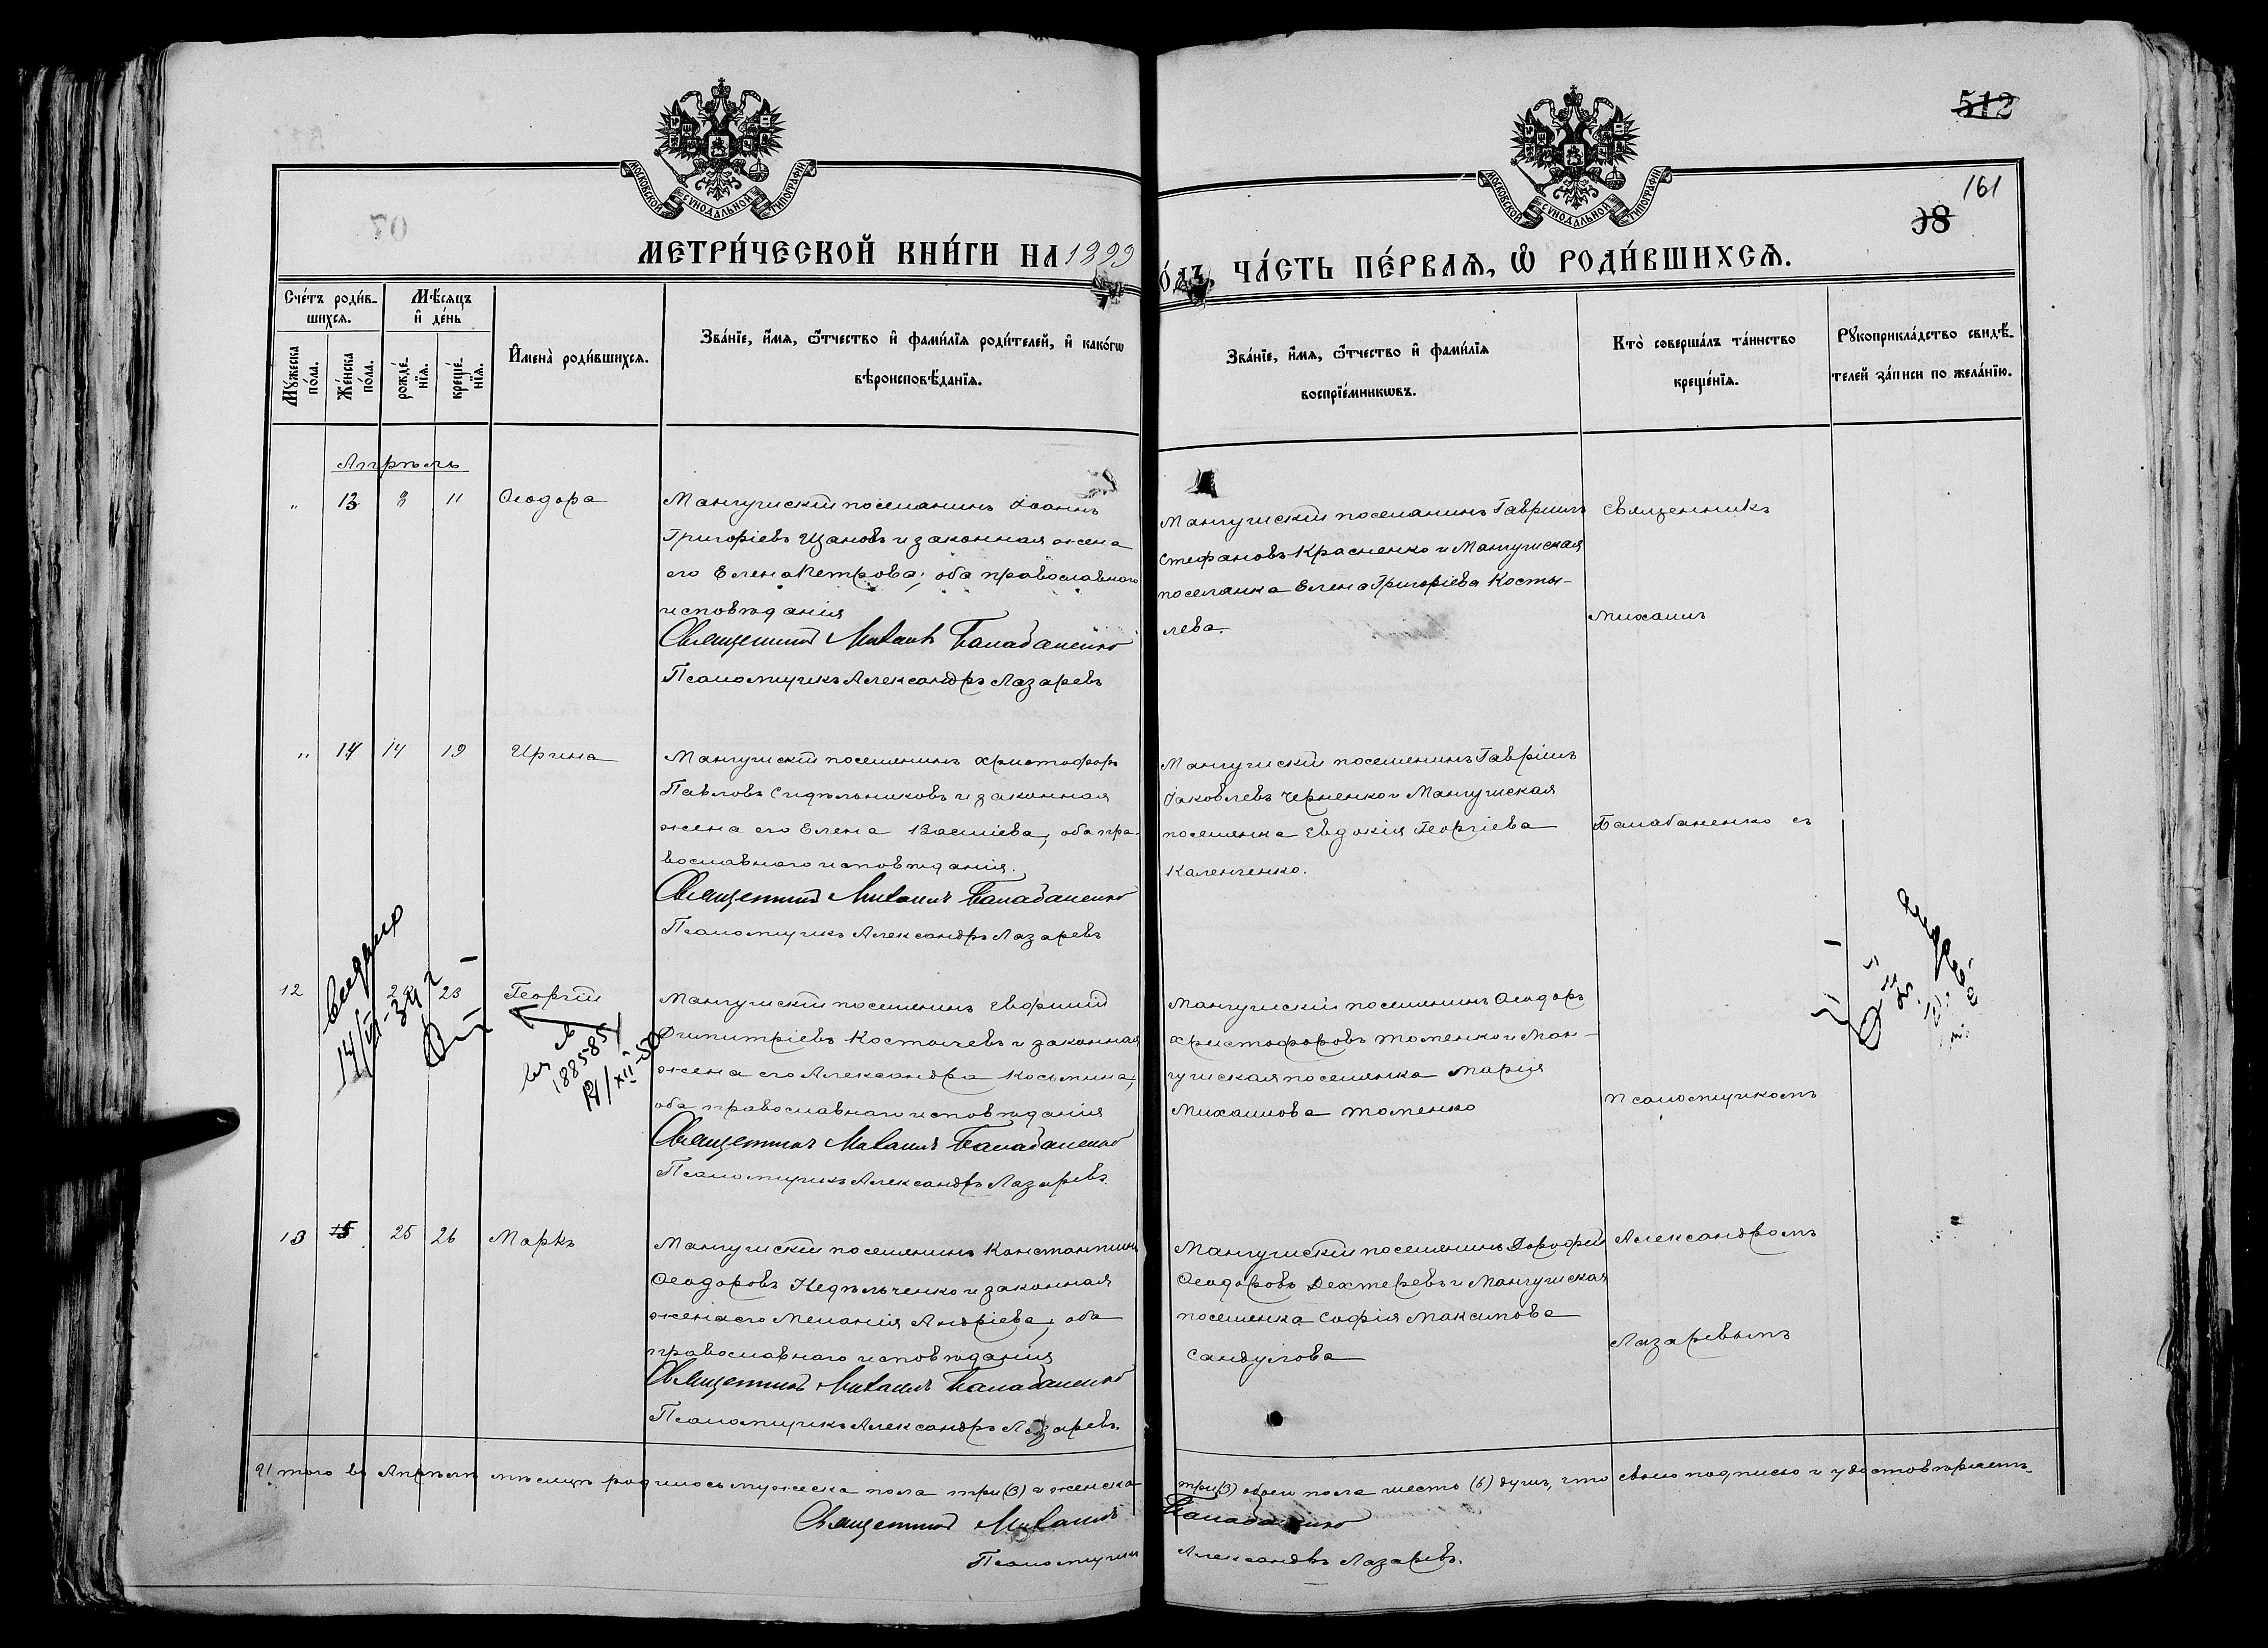 512
161
98
МОСКОВСКОЙ СѴНОДАЛЬНОЙ ТИПОГРАФІИ
МОСКОВСКОЙ СѴНОДАЛЬНОЙ ТИПОГРАФІИ
МЕТРИ́ЧЕСКОЙ КНИ́ГИ НА 1899
ѓодъ, ЧА́СТЬ ПЕ́РВАѦ, Ѡ҆ РОДИ́ВШИХСѦ.
Сче́тъ роди́в-
шихсѧ.
Мѣ́сѧцъ
и҆ де́нь
Мꙋ́жеска
по́ла.
Же́нска
по́ла.
рожде́-
нїѧ.
креще́-
нїѧ.
И҆мена̀ роди́вшихсѧ.
Зва́нїе, и҆́мѧ, ѻ҆́тчество и҆ фами́лїѧ роди́телей, и҆ како́гѡ
вѣроисповѣ́данїѧ.
Зва́нїе, и҆́мѧ, ѻ҆́тчество и҆ фами́лїѧ
воспрїе́мникѡвъ.
Кто̀ соверша́лъ та́инство
креще́нїѧ.
Рꙋкоприкла́дство свидѣ́-
телей за́писи по жела́нїю.
Апрѣль
" 13 8 11 Ѳеодора
Мангушскій поселянинъ Іоаннъ
Григоріевъ Щановъ и законная жена
его Елена Петрова; оба православнаго
исповѣданія
Священникъ Михаилъ Балабаненко
Псаломщикъ Александръ Лазаревъ
Мангушскій поселянинъ Гавріилъ
Стефановъ Красненко и Мангушская
поселянка Елена Григоріева Косты-
лева.
Священникъ
Михаилъ
" 14 14 19 Ирина
Мангушскій поселянинъ Христофоръ
Павловъ Сидѣльниковъ и законная
жена его Елена Василіева, оба пра-
вославнаго исповѣданія.
Священникъ Михаилъ Балабаненко
Псаломщикъ Александръ Лазаревъ
Мангушскій поселянинъ Гавріилъ
Іаковлевъ Черненко и Мангушская
поселянка Евдокія Георгіева
Каленченко.
Балабаненко съ
12 23 Георгій
14/VI-34 г
188585
19/XII-50
Мангушскій поселянинъ Евфимій
Димитріевъ Костычевъ и законная
жена его Александра Косьмина,
оба православнаго исповѣданія
Священникъ Михаилъ Балабаненко
Псаломщикъ Александръ Лазаревъ.
Мангушскій поселянинъ Ѳеодоръ
Христофоровъ Томенко и Ман-
гушская поселянка Марія
Михаилова Томенко
Псаломщикомъ
13 15 25 26 Маркъ
Мангушскій поселянинъ Константинъ
Ѳеодоровъ Недѣльченко и законная
жена его Меланія Андріева, оба
православнаго исповѣданія
Священникъ Михаилъ Балабаненко
Псаломщикъ Александръ Лазаревъ.
Мангушскій поселянинъ Дорофей
Ѳеодоровъ Дехтеревъ и Мангушская
поселянка Софія Максимова
Сандулова
Александромъ
Лазаревымъ
Итого въ Апрѣлѣ мѣсяцѣ родилось мужеска пола три (3) и женска
три (3) обоего пола шесть (6) душъ, что своею подписью и удостовѣряемъ.
Священникъ Михаилъ Балабаненко
Псаломщикъ Александръ Лазаревъ.